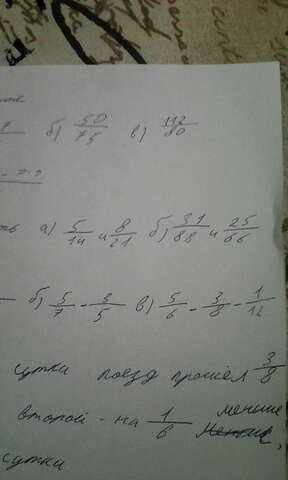 7 б) 50/75 в) 112/80
а) 5/14 и 8/21 б) 31/88 и 25/66
б) 5/7 - 3/5 в) 5/6 - 3/8 - 1/12
сутки поезд прошёл 3/8
второй - на 1/6 меньше
сутки